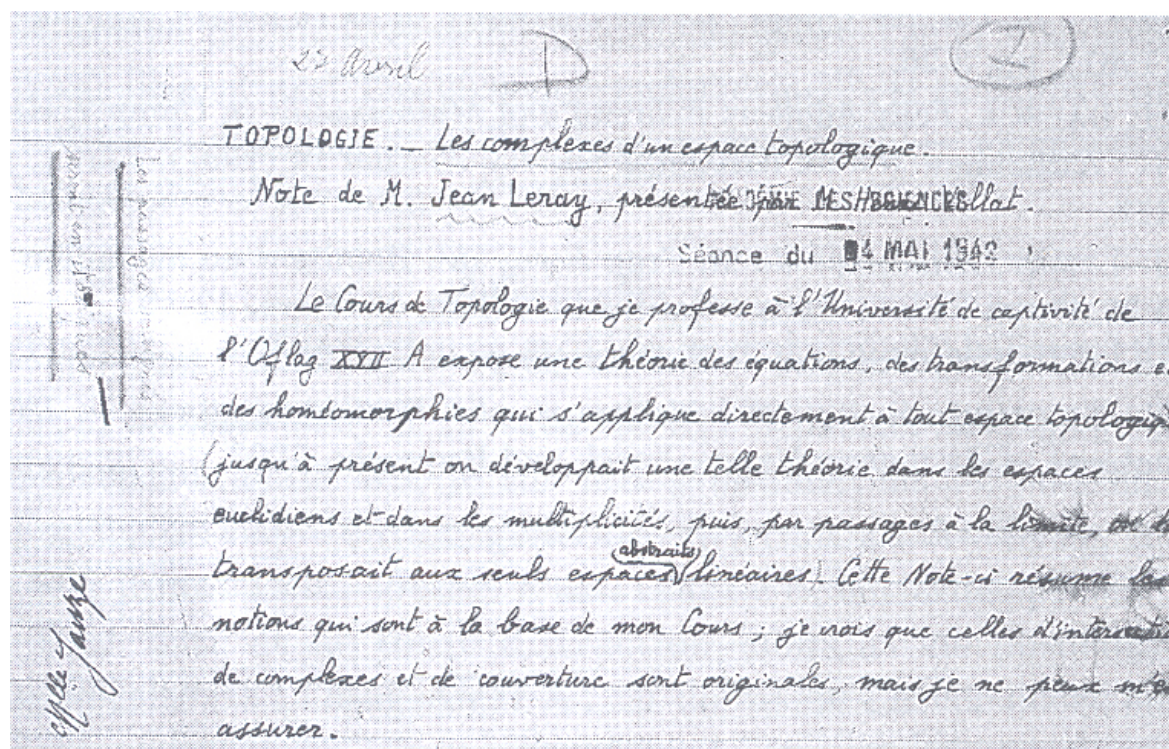 22 avril D I
TOPOLOGIE. _ Les complexes d'un espace topologique.
Note de M. Jean Leray, présentée par
Séance du 4 MAI 1942
Le Cours de Topologie que je professe à l'Université de captivité de
l'Oflag XVII A expose une théorie des équations, des transformations e
des homéomorphies qui s'applique directement à tout espace topologiq
(jusqu'à présent on développait une telle théorie dans les espaces
euclidiens et dans les multiplicités, puis, par passages à la limite, on
(abstraits)
transposait aux seuls espaces linéaires). Cette Note-ci résume les
notions qui sont à la base de mon Cours ; je crois que celles d'intersecti
de complexes et de couverture sont originales, mais je ne peux m'e
assurer.
Les passages
Mlle